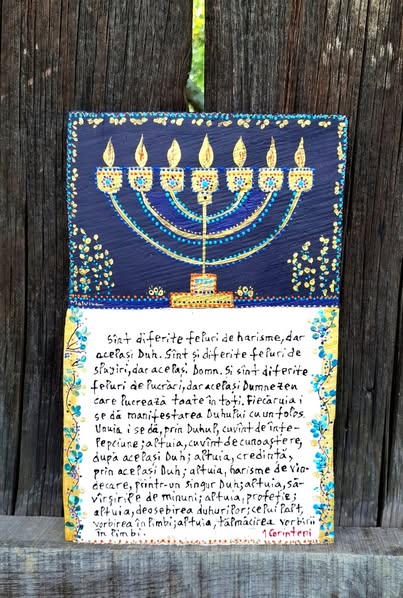 Malvina
Sînt diferite feluri de harisme, dar
același Duh. Sînt și diferite feluri de
slujiri, dar același Domn. Și sînt diferite
feluri de lucrări, dar același Dumnezeu
care lucrează toate în toți. Fiecăruia i
se dă manifestarea Duhului cu un folos.
Unuia i se dă, prin Duhul, cuvînt de înțe-
lepciune; altuia, cuvînt de cunoaștere,
după același Duh; altuia, credință,
prin același Duh; altuia, harisme de vin-
decare, printr-un singur Duh; altuia, să-
vîrșirile de minuni; altuia, profeție;
altuia, deosebirea duhurilor; celuilalt,
vorbirea în limbi; altuia, tălmăcirea vorbirii
în limbi.
1 Corinteni